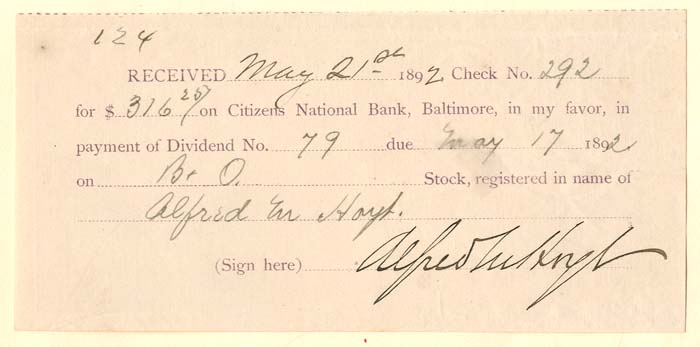 124
RECEIVED May 21st 1892 Check No. 292
for $ 316 25/ on Citizens National Bank, Baltimore, in my favor, in
payment of Dividend No. 79 due May 17 1892
on B & O. Stock, registered in name of
Alfred M Hoyt.
(Sign here) Alfred M Hoyt